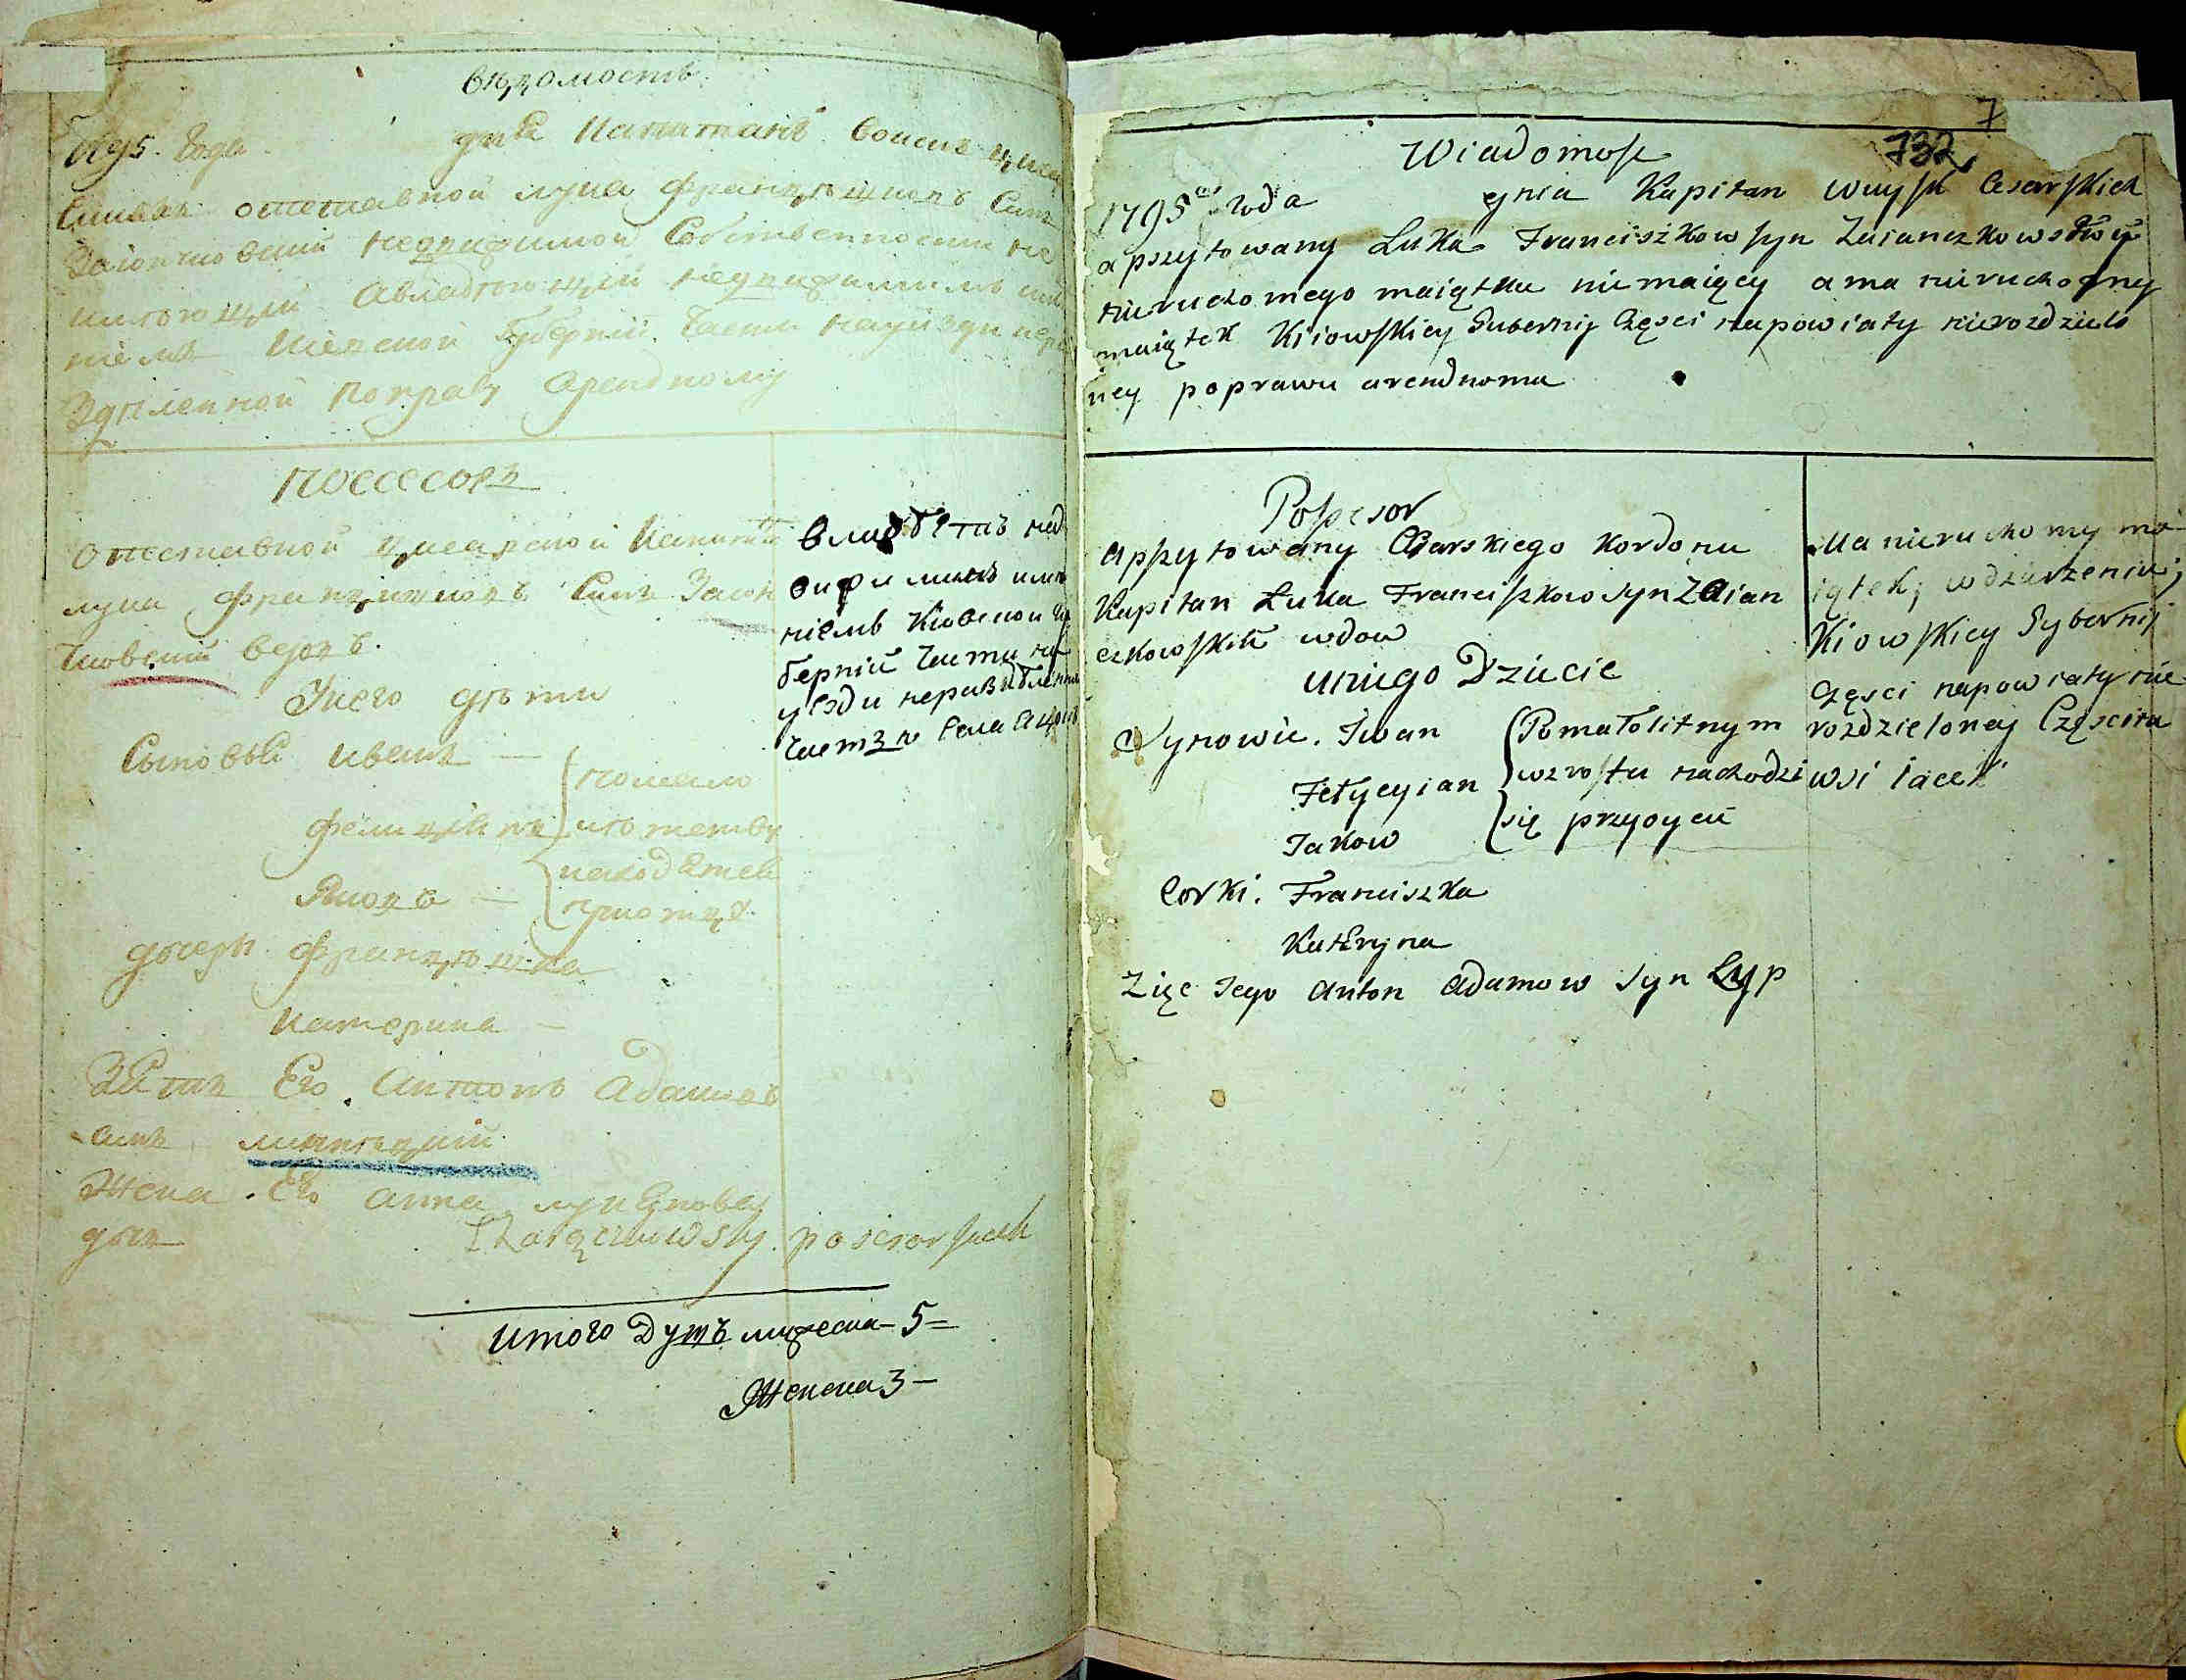 вѣдомость
1795. Года дня Капитанъ воискъ цесар
скихъ отставной лука францѣшковъ Синъ
Заіончковский недвижимой Собственности не
имѣющій авладѣющій недвижимимъ имѣ
ниемъ Киевской Губерніи Части науезди нера
здѣленной поправу Арендному
поссесоръ
отставной цисарской Капитанъ
лука францишковъ Синъ Заіон
чковский вдовъ.
Унего дѣти
Сыновья иванъ —
фелиціянъ
Яковъ —
помало
лѣтству
находятся
приотцѣ
дочери францѣшка
катерина —
Зять Его Антонъ Адамовъ
синъ липнѣцкій
Жена Его анна лукяновна
дочь
владѣетъ нед
вижимимъ имѣ
ніемъ Киевской Гу
берніи Части на
уезди неразделенной
частъю села Яцокъ
Łukasz Zaiączkowsky posesor
итого Душъ мужеска — 5 =
Женска 3 —
7
732
Wiadomosc
1795go Roda dnia Kapitan Woysk Cesarskich
apszytowany Luka Franciszkow syn Zaianczkowskiy
nieruchomego maiątku niemaiący a ma nieruchomy
maiątek Kiiowskiey Gubernij Części napowiaty nierozdzielo
ney poprawu arendnomu
Possesor
apszytowany Cesarskiego Kordonu
Kapitan Luka Franciszkow syn Zaian
czkowskiy wdow
uniego Dziecie
Synowie. Iwan
Felycyian
Jakow
Pomałolitnym
wzrostu nachodzi
się przyoycu
Corki. Franciszka
Kateryna
Zięc Jego Anton Adamow syn Lyp
Ma nieruchomy ma
iątek w dzierzeniu
Kiowskiey Gybernij
Części napowiaty nie
rozdzieloney Częścią
wsi Iacek